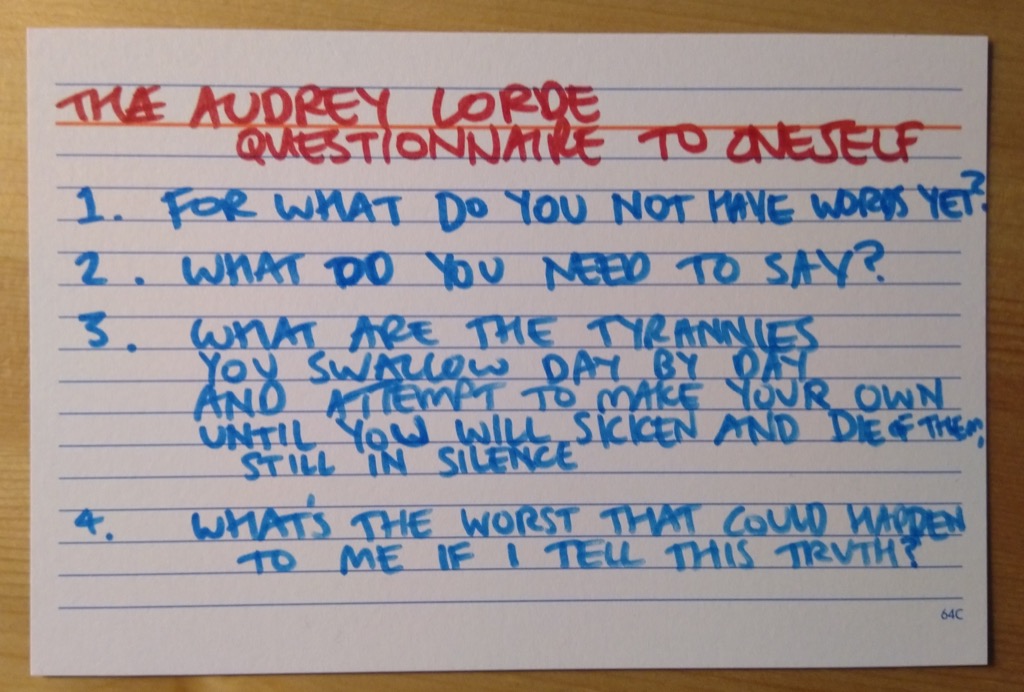 THE AUDREY LORDE
QUESTIONNAIRE TO ONESELF
1. FOR WHAT DO YOU NOT HAVE WORDS YET?
2. WHAT DO YOU NEED TO SAY?
3. WHAT ARE THE TYRANNIES
YOU SWALLOW DAY BY DAY
AND ATTEMPT TO MAKE YOUR OWN
UNTIL YOU WILL SICKEN AND DIE OF THEM,
STILL IN SILENCE
4. WHAT'S THE WORST THAT COULD HAPPEN
TO ME IF I TELL THIS TRUTH?
64C